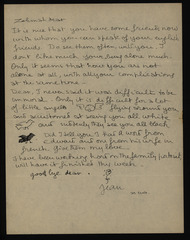 It is nice that you have some friends now
with whom you can speak of your english
friends. Do see them often, will you. I
don't like much your being alone much.
Only it seems that now you are not
alone at all, with all your complications
at the same time.
Dear, I never said it was difficult to be
an angel. Only it is difficult for a lot
of little angels flying around you,
and sometimes at seeing you all white
and suddenly they see you all black
Did I tell you I had a word from
Edward and one from his wife in
french. Give them my love.
I have been working hard on the family portrait
will have it finished this week.
good bye dear
Jean